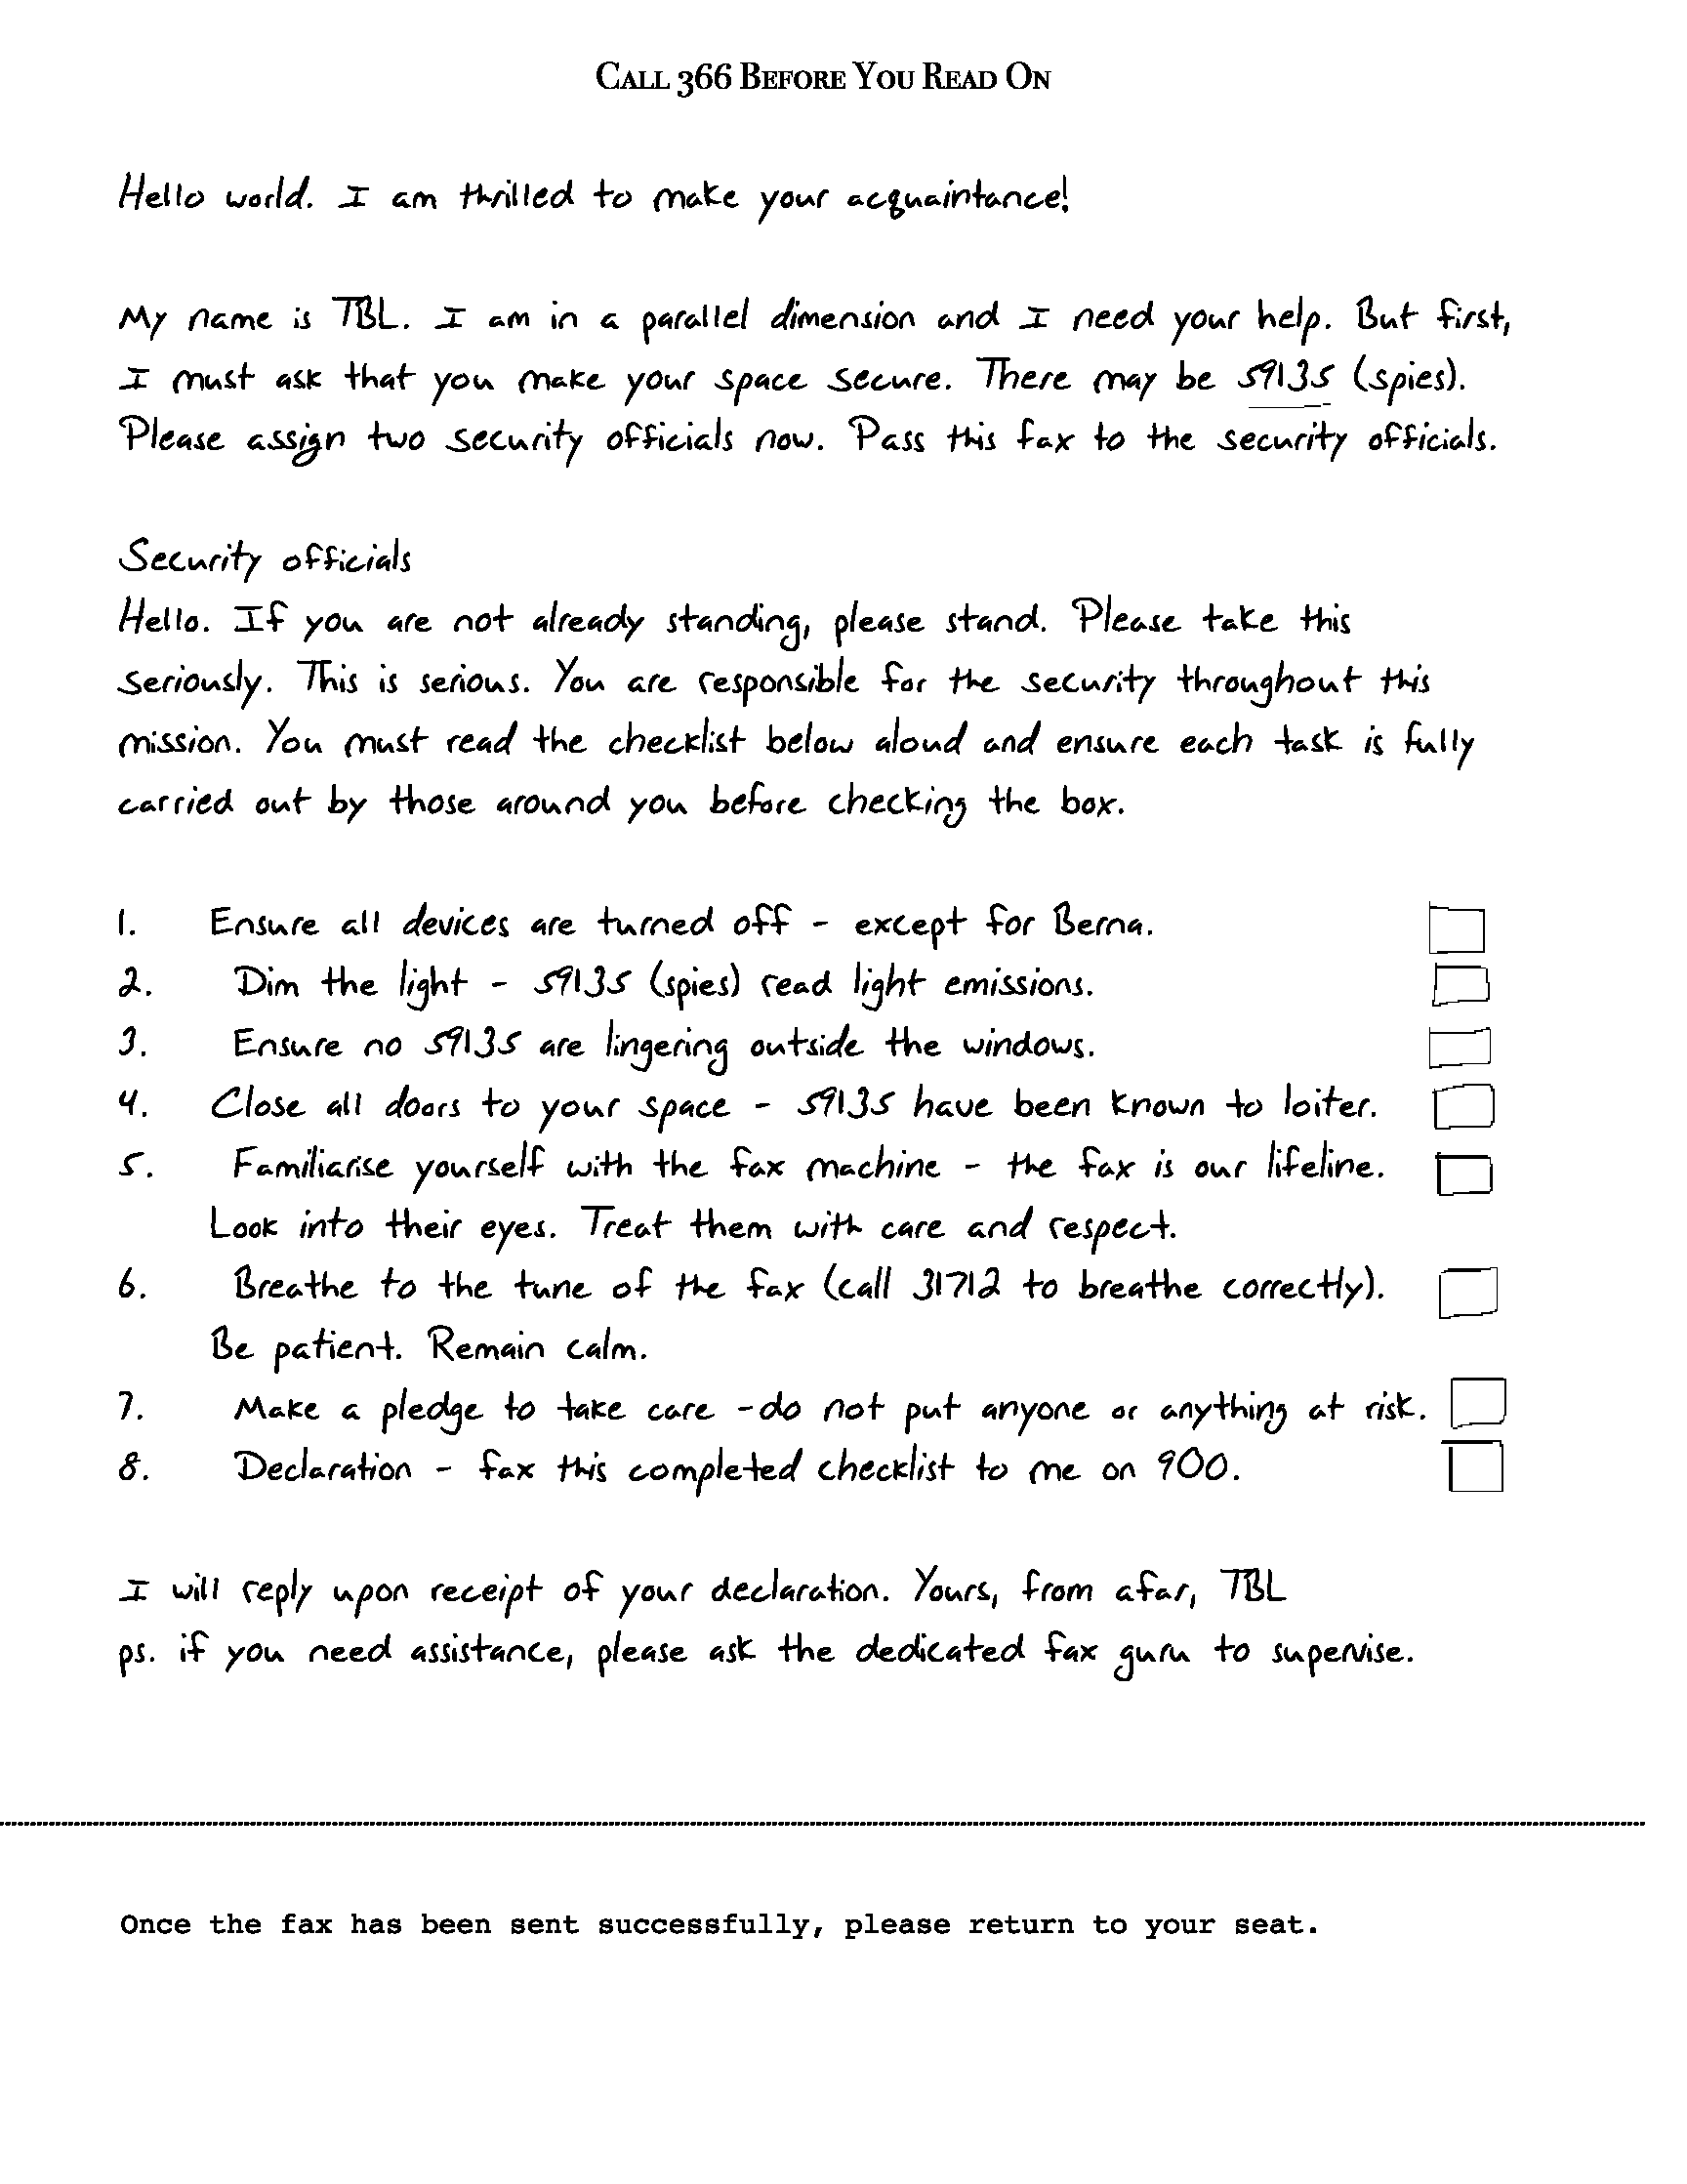 CALL 366 BEFORE YOU READ ON
Hello world. I am thrilled to make your acquaintance!
My name is TBL. I am in a parallel dimension and I need your help. But first,
I must ask that you make your space secure. There may be 59135 (spies).
Please assign two security officials now. Pass this fax to the security officials.
Security officials
Hello. If you are not already standing, please stand. Please take this
seriously. This is serious. You are responsible for the security throughout this
mission. You must read the checklist below aloud and ensure each task is fully
carried out by those around you before checking the box.
1. Ensure all devices are turned off - except for Berna.
2. Dim the light - 59135 (spies) read light emissions.
3. Ensure no 59135 are lingering outside the windows.
4. Close all doors to your space - 59135 have been known to loiter.
5. Familiarise yourself with the fax machine - the fax is our lifeline.
Look into their eyes. Treat them with care and respect.
6. Breathe to the tune of the fax (call 31712 to breathe correctly).
Be patient. Remain calm.
7. Make a pledge to take care - do not put anyone or anything at risk.
8. Declaration - fax this completed checklist to me on 900.
I will reply upon receipt of your declaration. Yours, from afar, TBL
ps. if you need assistance, please ask the dedicated fax guru to supervise.
Once the fax has been sent successfully, please return to your seat.